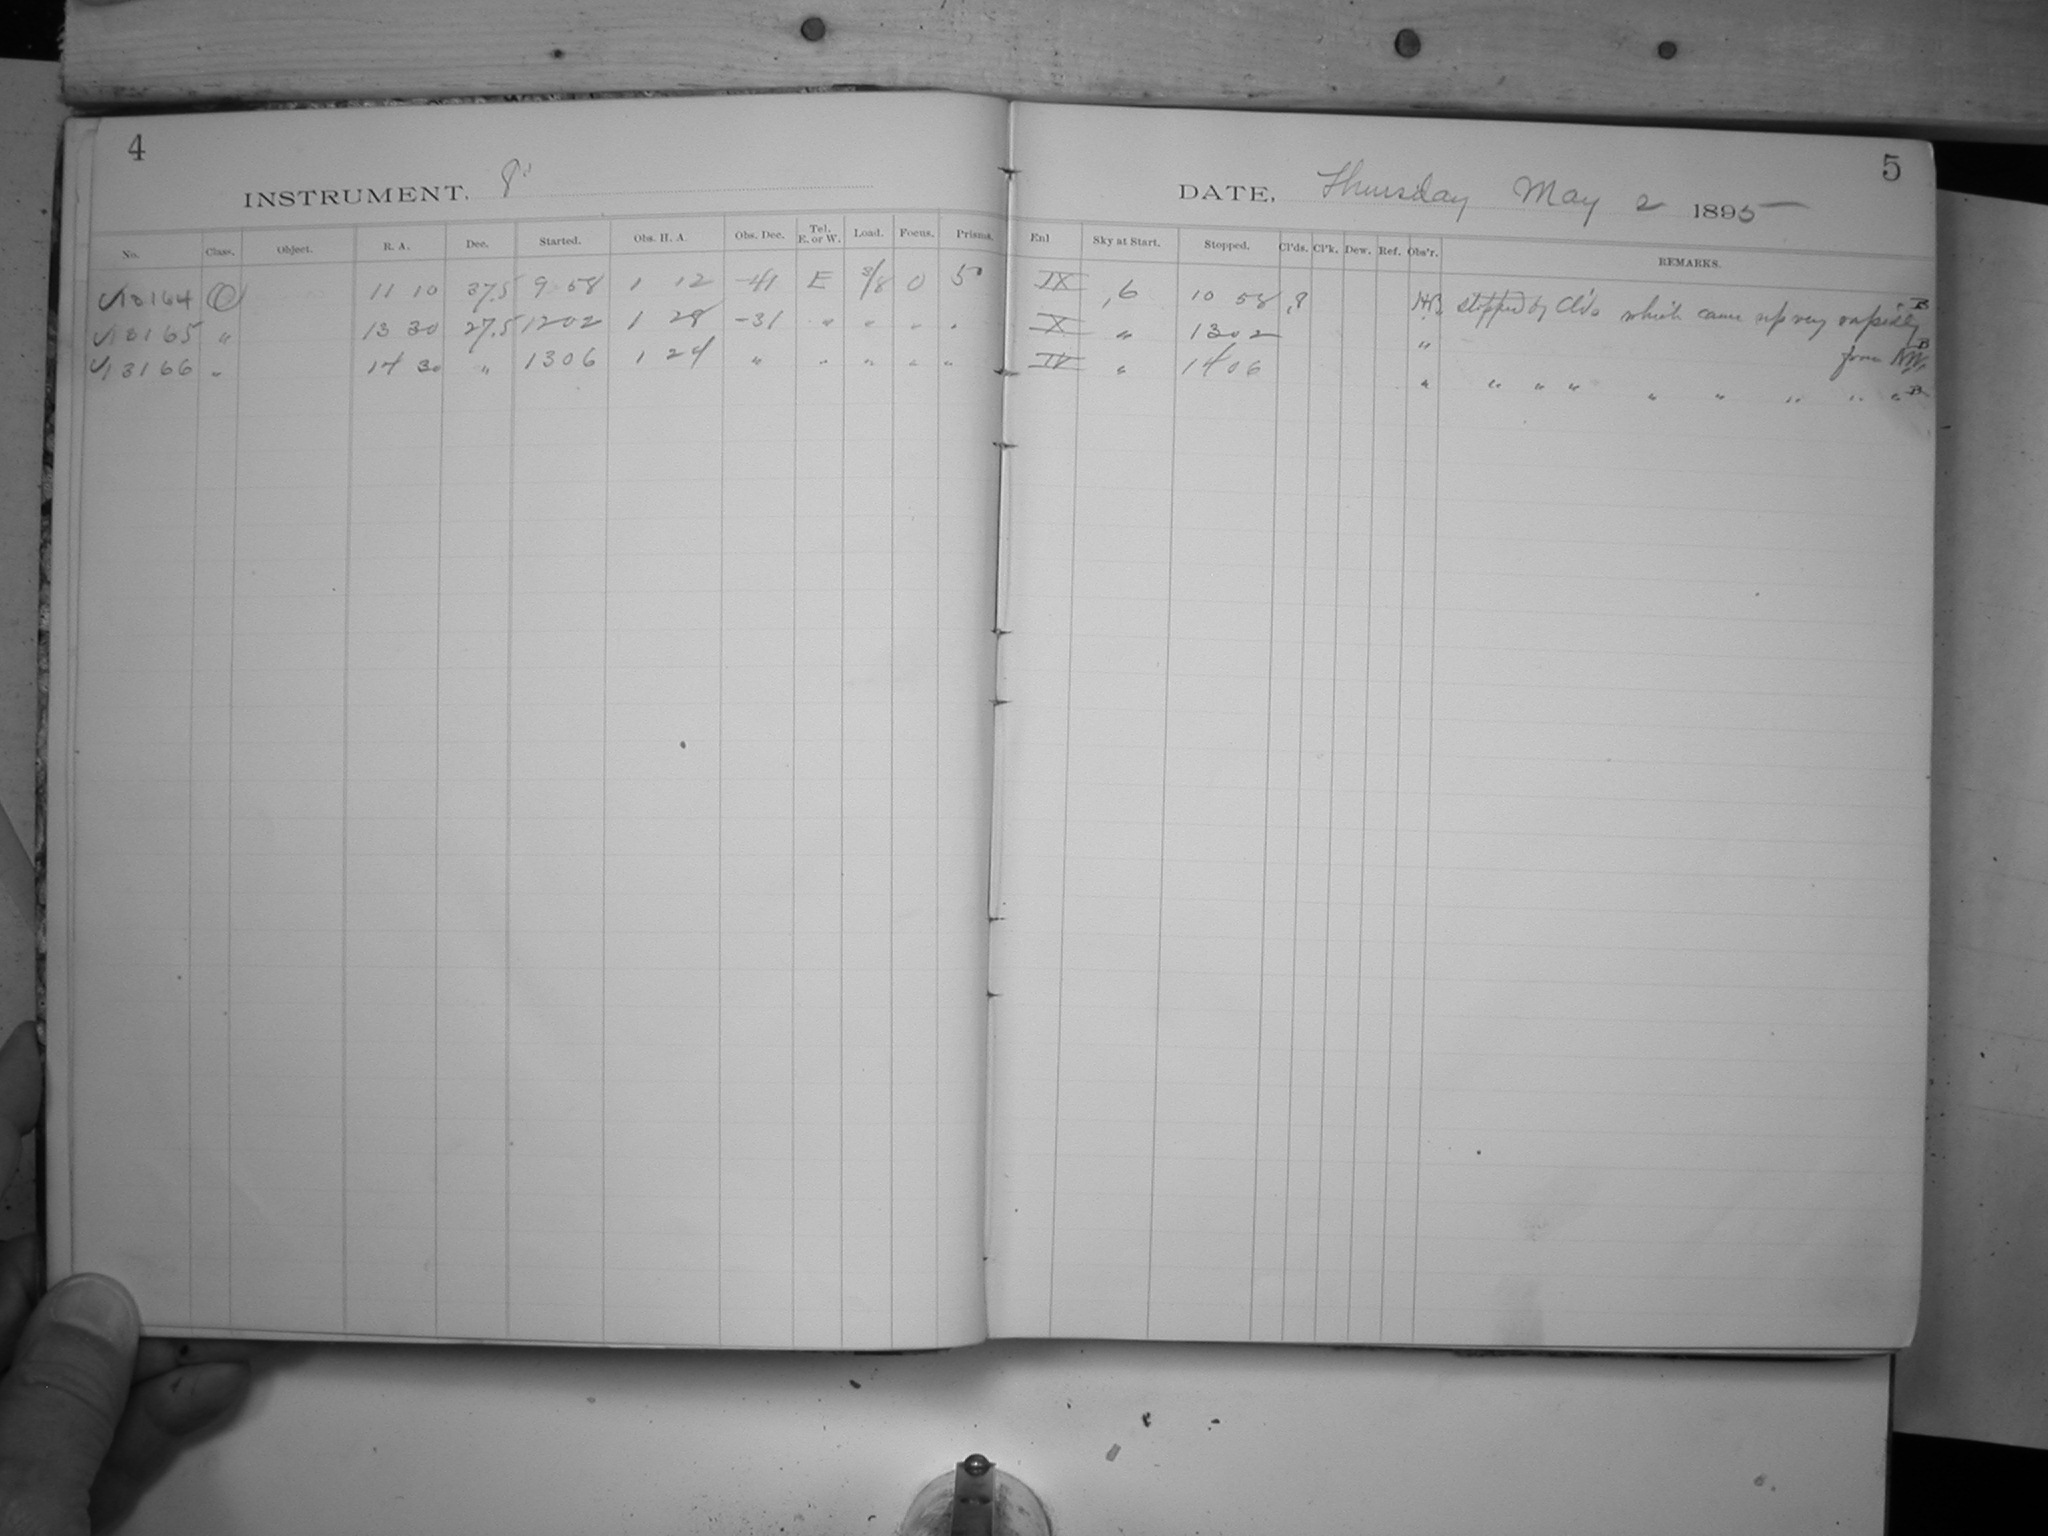 4
INSTRUMENT. 8"
No. Class. Object. R. A. Dec. Started. Obs. H. A. Obs. Dec. Tel. E. or W. Load. Focus. Prisms.
√13164 O 11 10 37.5 9 58 1 12 -41 E 3/8 0 5"
√13165 " 13 30 27.5 1202 1 28 -31 " " " "
√13166 " 14 30 " 1306 1 24 " " " " "
5
DATE. Thursday May 2 1895
Enl Sky at Start. Stopped. Cl'ds. Cl'k. Dew. Ref. Obs'r. REMARKS.
IX ,6 10 58 ,8 stopped by Cl'ds which came up very rapidly B
X " 1302 " from NW. B
IV " 1406 " " " " " " " " " B